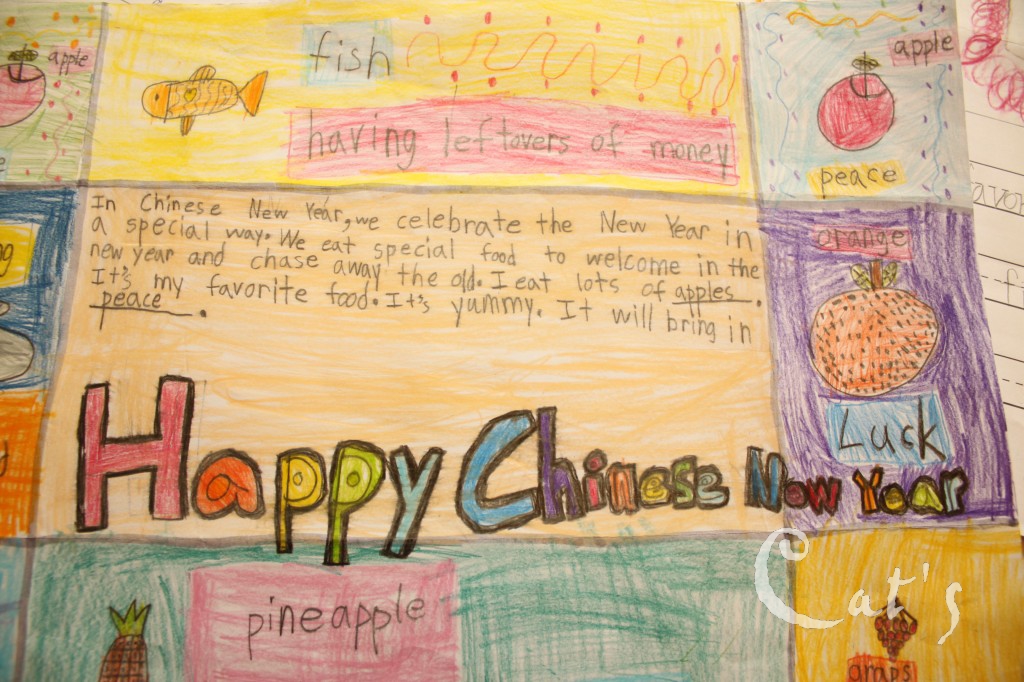 apple
fish
having leftovers of money
apple
peace
In Chinese New Year, we celebrate the New Year in
a special way. We eat special food to welcome in the
new year and chase away the old. I eat lots of apples.
It's my favorite food. It's yummy. It will bring in
peace.
orange
Luck
Happy Chinese New Year
pineapple
Cat's